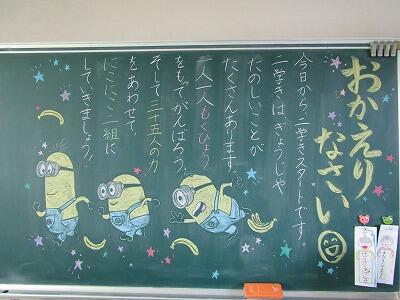 おかえり
なさい
今日から二学きスタートです。
二学きは、ぎょうじや
たのしいことが
たくさんあります。
一人一人もくひょう
をもってがんばろう。
そして三十五人の力
をあわせて、
にこにこ二組に
していきましょう!